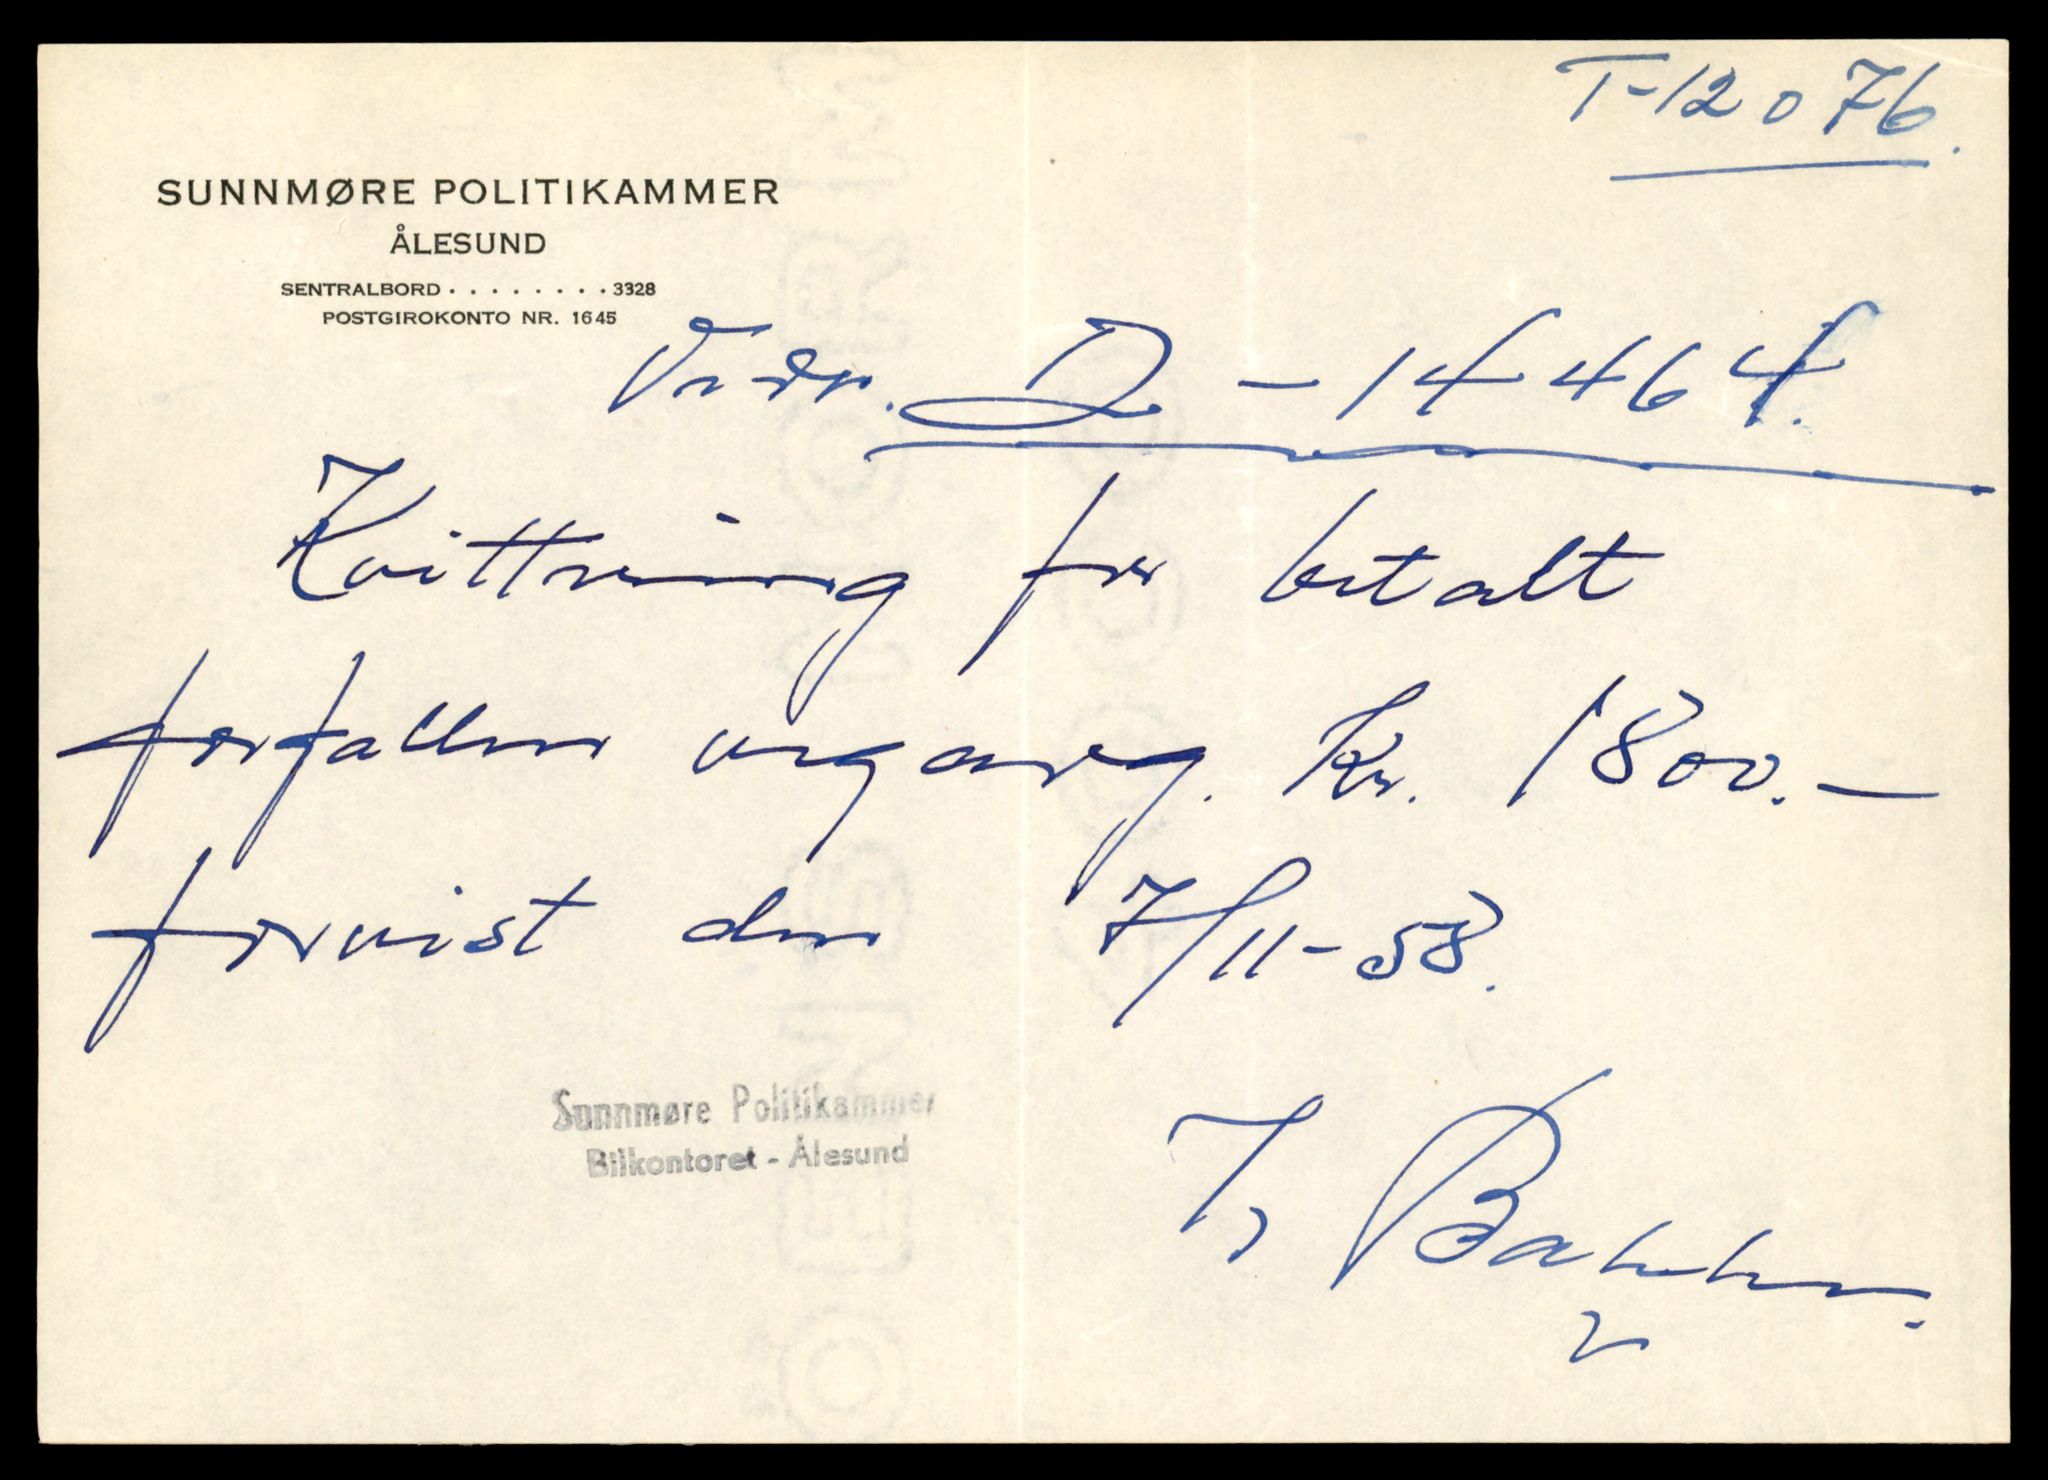 T-12076.
SUNNMØRE POLITIKAMMER
ÅLESUND
SENTRALBORD ........ 3328
POSTGIROKONTO NR. 1645
Vedr. D - 14464.
Kvittering for betalt
forfallen avgang. Kr. 1800.-
forvist den 7/11-58.
Sunnmøre Politikammer
Bilkontoret - Ålesund